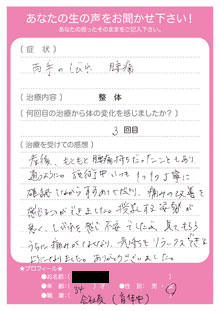 あなたの生の声をお聞かせ下さい！
あなたの思ったそのままをご記入下さい。
〔症　状〕
両手のしびれ　腰痛
〔治療内容〕　整　体
〔何回目の治療から体の変化を感じましたか？〕
3 回目
〔治療を受けての感想〕
産後、もともと腰痛持ちだったこともあり
通うように。施術中いつも1つ1つ丁寧に
確認しながらすすめて下さり、痛みの改善を
感じることができました。授乳する姿勢が
悪く、しびれを感じ不安でしたが、見てもらう
うちに痛みがなくなり、気持ちもリラックスできる
ようになりました。ありがとうございました。
★プロフィール★
●お名前(
●年　齢( 34 )才　●性　別( 男・女 )
会社員（育休中）